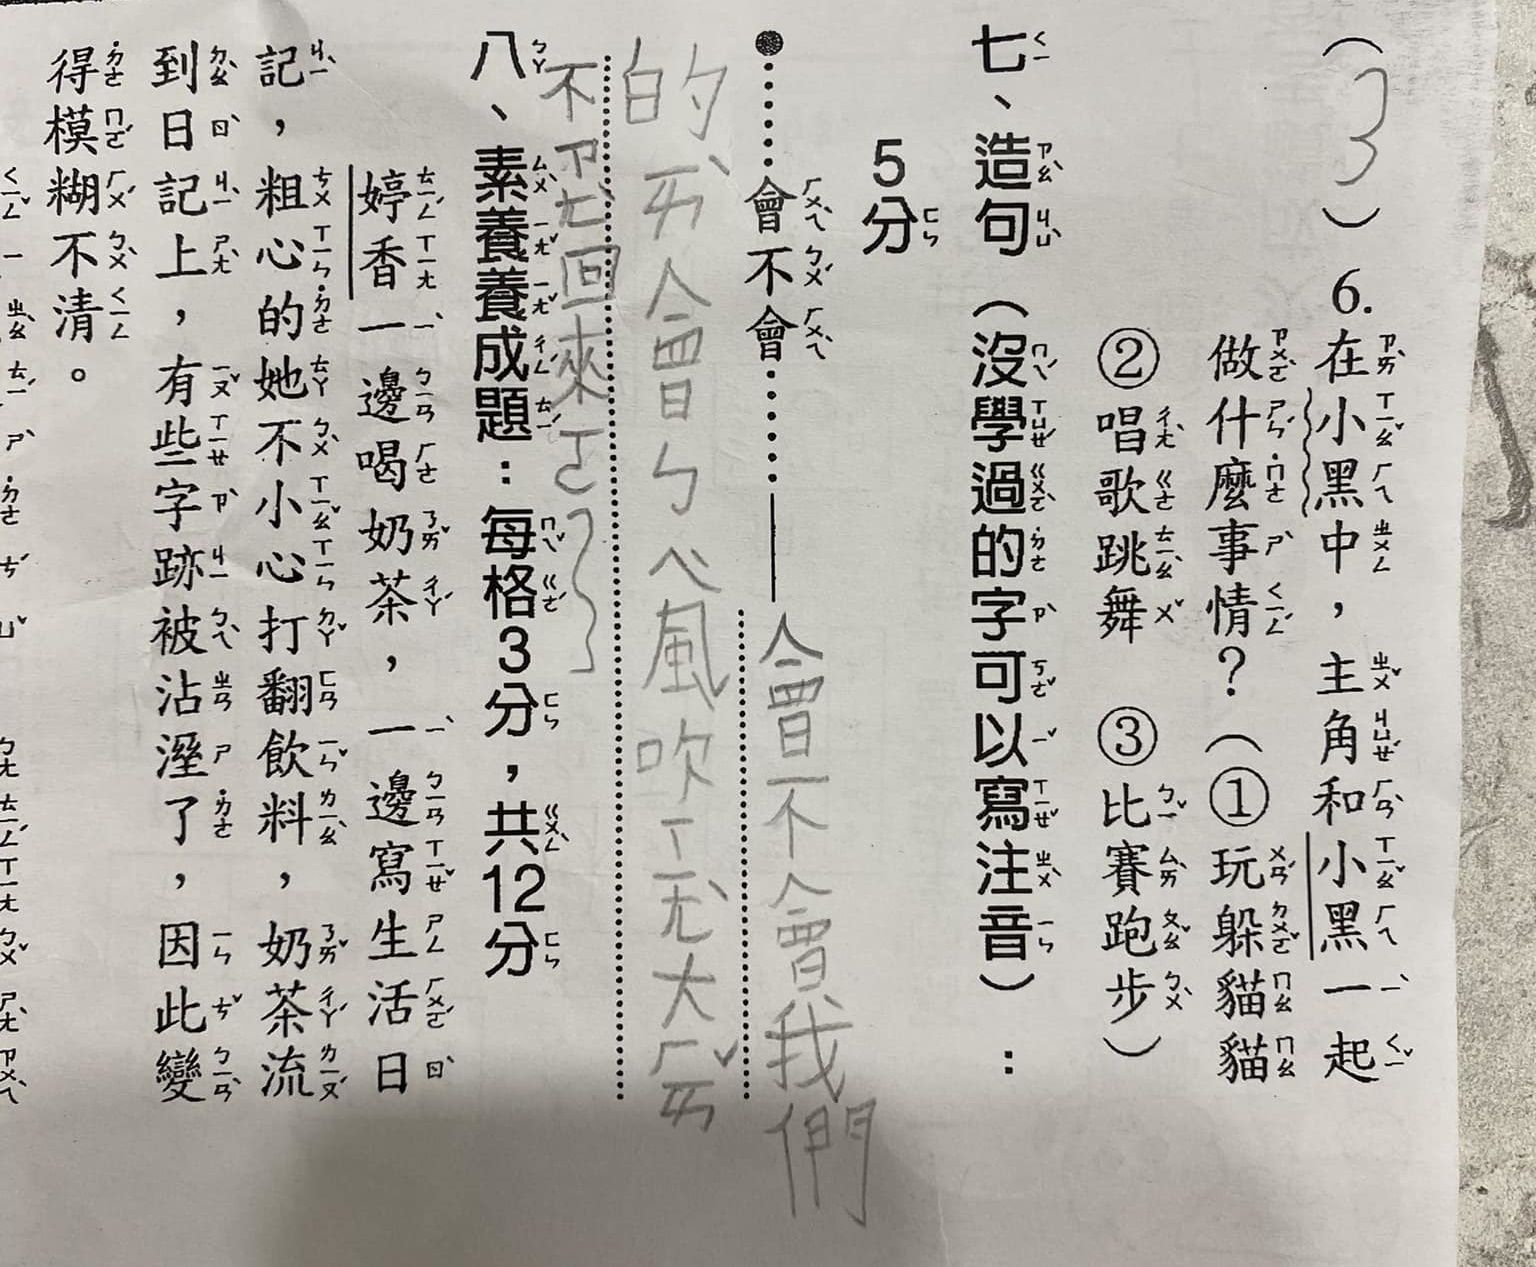 （3）6.在小黑中，主角和小黑一起
做什麼事情？（①玩躲貓貓
②唱歌跳舞　③比賽跑步）
七、造句（沒學過的字可以寫注音）：
5分
●……會不會……——會不會我們
的ㄞˋ會ㄅㄟˋ風吹ㄒㄧㄤˋ大ㄏㄞˇ
不ㄗㄞˋ回來ㄛ
八、素養養成題：每格3分，共12分
婷香一邊喝奶茶，一邊寫生活日
記，粗心的她不小心打翻飲料，奶茶流
到日記上，有些字跡被沾溼了，因此變
得模糊不清。